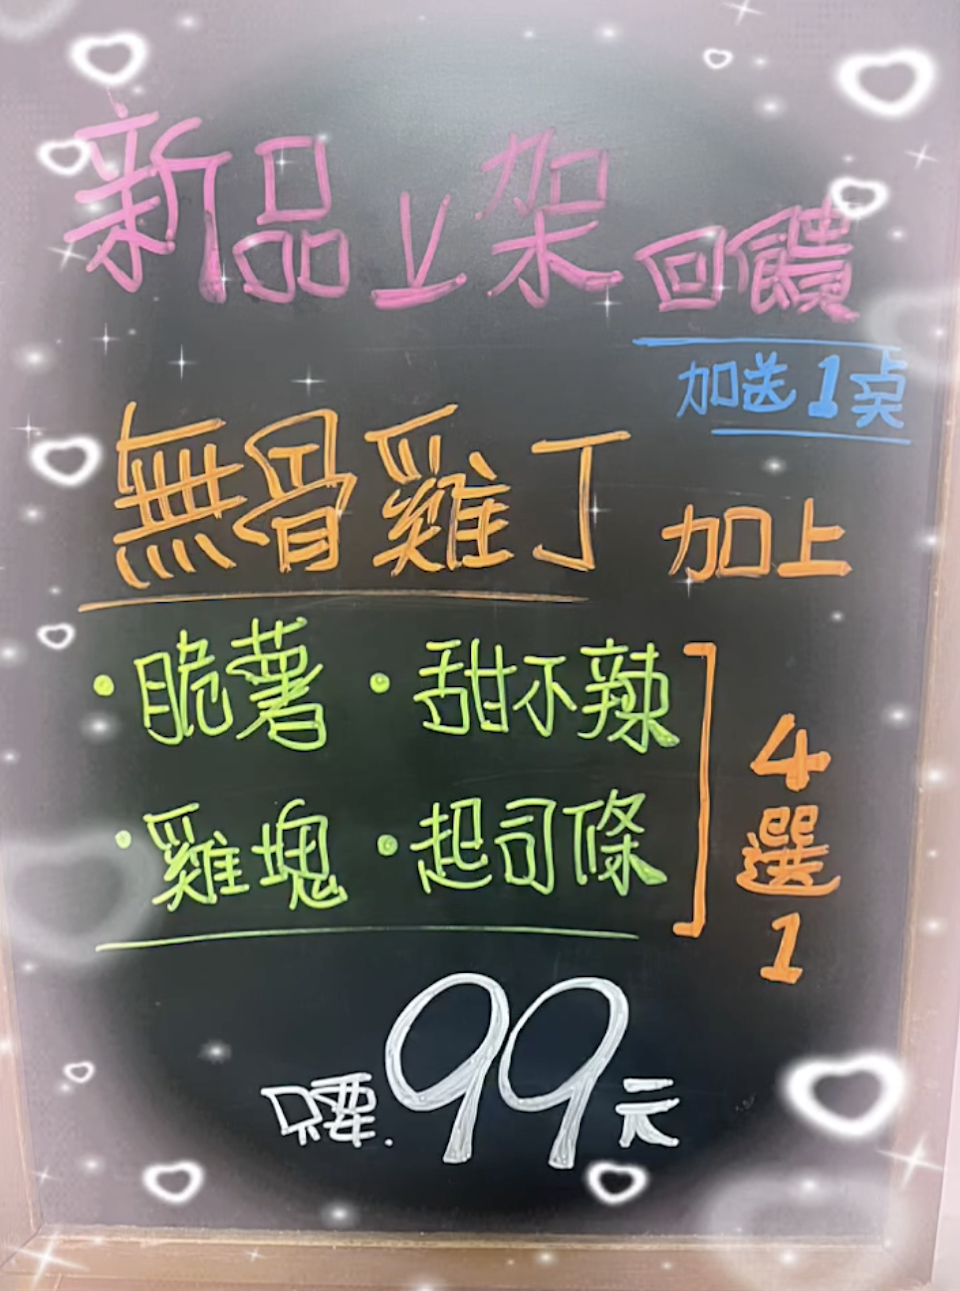 新品上架 回饋
加送1点
無骨雞丁 加上
・脆薯 ・甜不辣
・雞塊 ・起司條
4選1
只要.99元